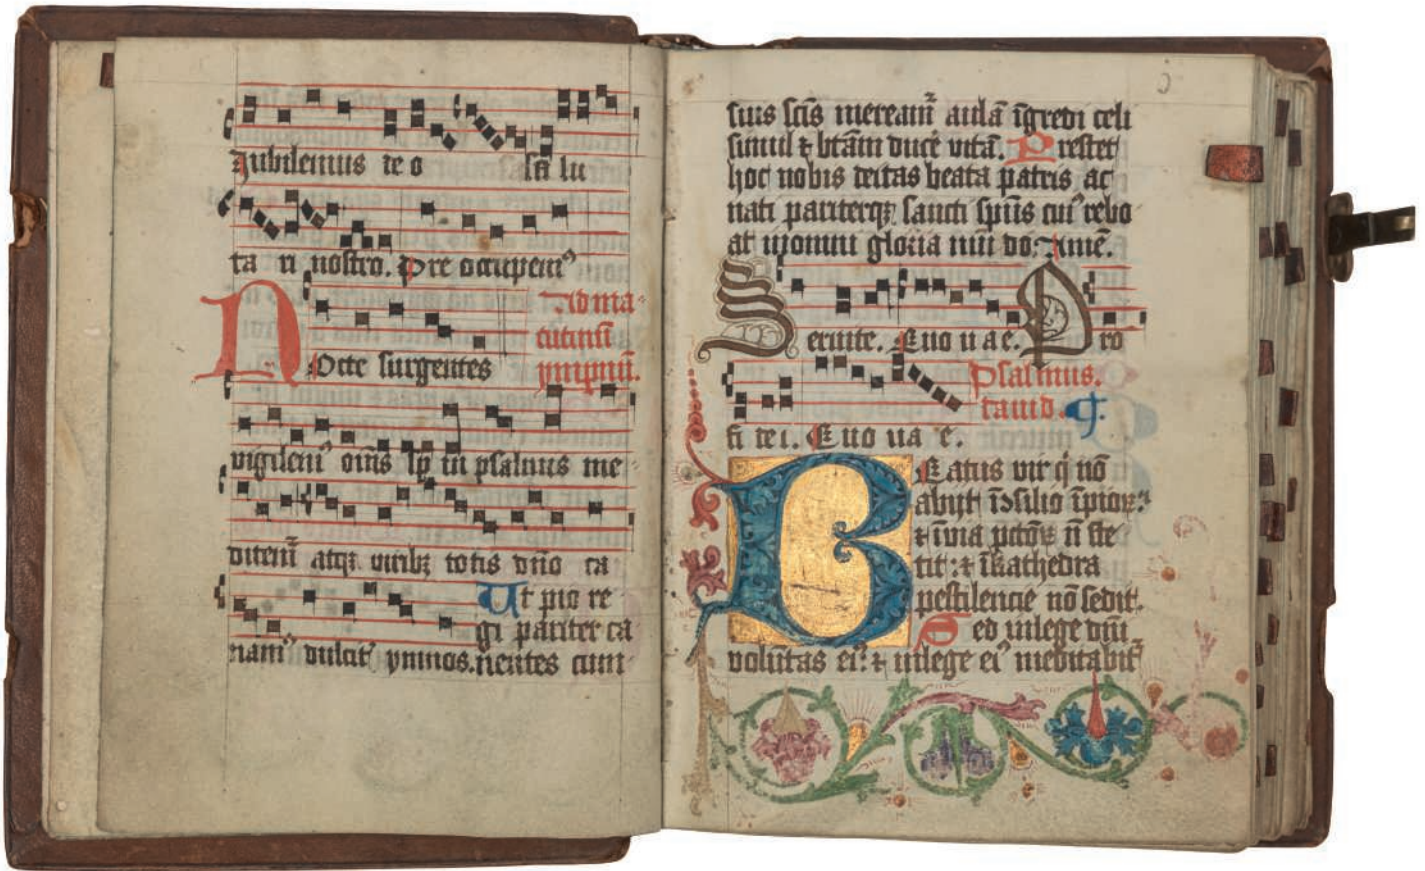 Jubilemus deo salu
ta ri nostro. Pre occupem⁹
Ad ma
tutinū
Nocte surgentes ympnū.
vigilem⁹ om̄s sp̄ in psalmis me
ditem̄ atqꝫ viribꝫ totis dn̄o ca
Ut pio re
gi pariter ca
nam⁹ dulcit᷑ ymnos. nentes cum
suis sc̄is meream᷑ aulā īgredi celi
simul ⁊ btām ducē vitā. Prestet
hoc nobis deitas beata patris ac
nati pariterqꝫ sancti sp̄us cui⁹ rebo
at ī omni gloria mū do. Amē.
Seruite. Euouae. Pro
Psalmus.
dauid.
fi dei. Euouae.
BEatus vir q̇ nō
abijt ī ↄsilio īpioꝝ:
⁊ ī via pctōꝝ n̄ ste
tit: ⁊ ī kathedra
pestilencie nō sedit.
Sed in lege dn̄i
volūtas ei⁹: ⁊ in lege ei⁹ meditabit᷑